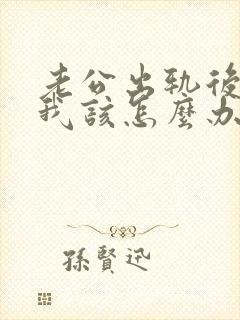 老公出軌後
我該怎麼办
孫賢迅